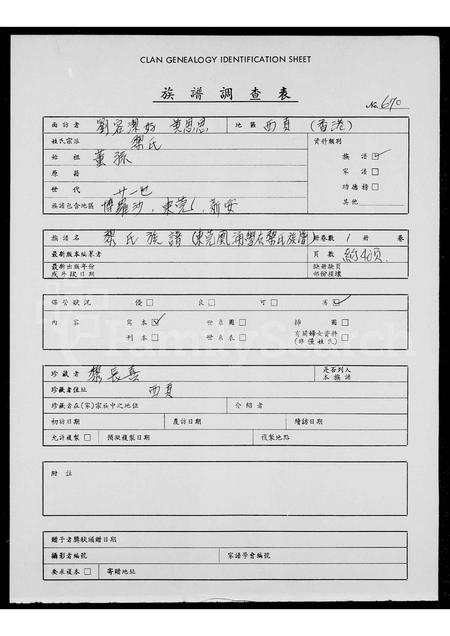 CLAN GENEALOGY IDENTIFICATION SHEET
族譜調查表
No. 670
面訪者 劉容潔好 黃思恩 地區 西貢 (香港)
姓氏宗派 黎氏 資料類別
始祖 董孫 族譜 ✓
原籍 家譜 □
世代 廿一也 功德榜 □
族譜包含地區 博羅沙,東莞,新安 其他
族譜名 黎氏族譜 1 冊 卷
最新版本編纂者 頁數 約40頁
最新出版年份 缺冊缺頁
或片段日期 部份損壞
保管狀況 優 □ 良 □ 可 □ 劣 ✓
內容 寫本 ✓ 世系圖 □ 插圖 □
刊本 □ 世系表 □ 有關婦女資料 □
(非僅姓氏)
FamilySearch
珍藏者 黎長 是否列入
本族譜
珍藏者住址 西貢
珍藏者在(家)宗族中之地位 介紹者
初訪日期 產訪日期 續訪日期
允許複製 □ 預擬複製日期 複製地點
附註
贈予者獎狀頒贈日期
攝影者編號 家譜學會編號
要求複本 □ 寄贈地址